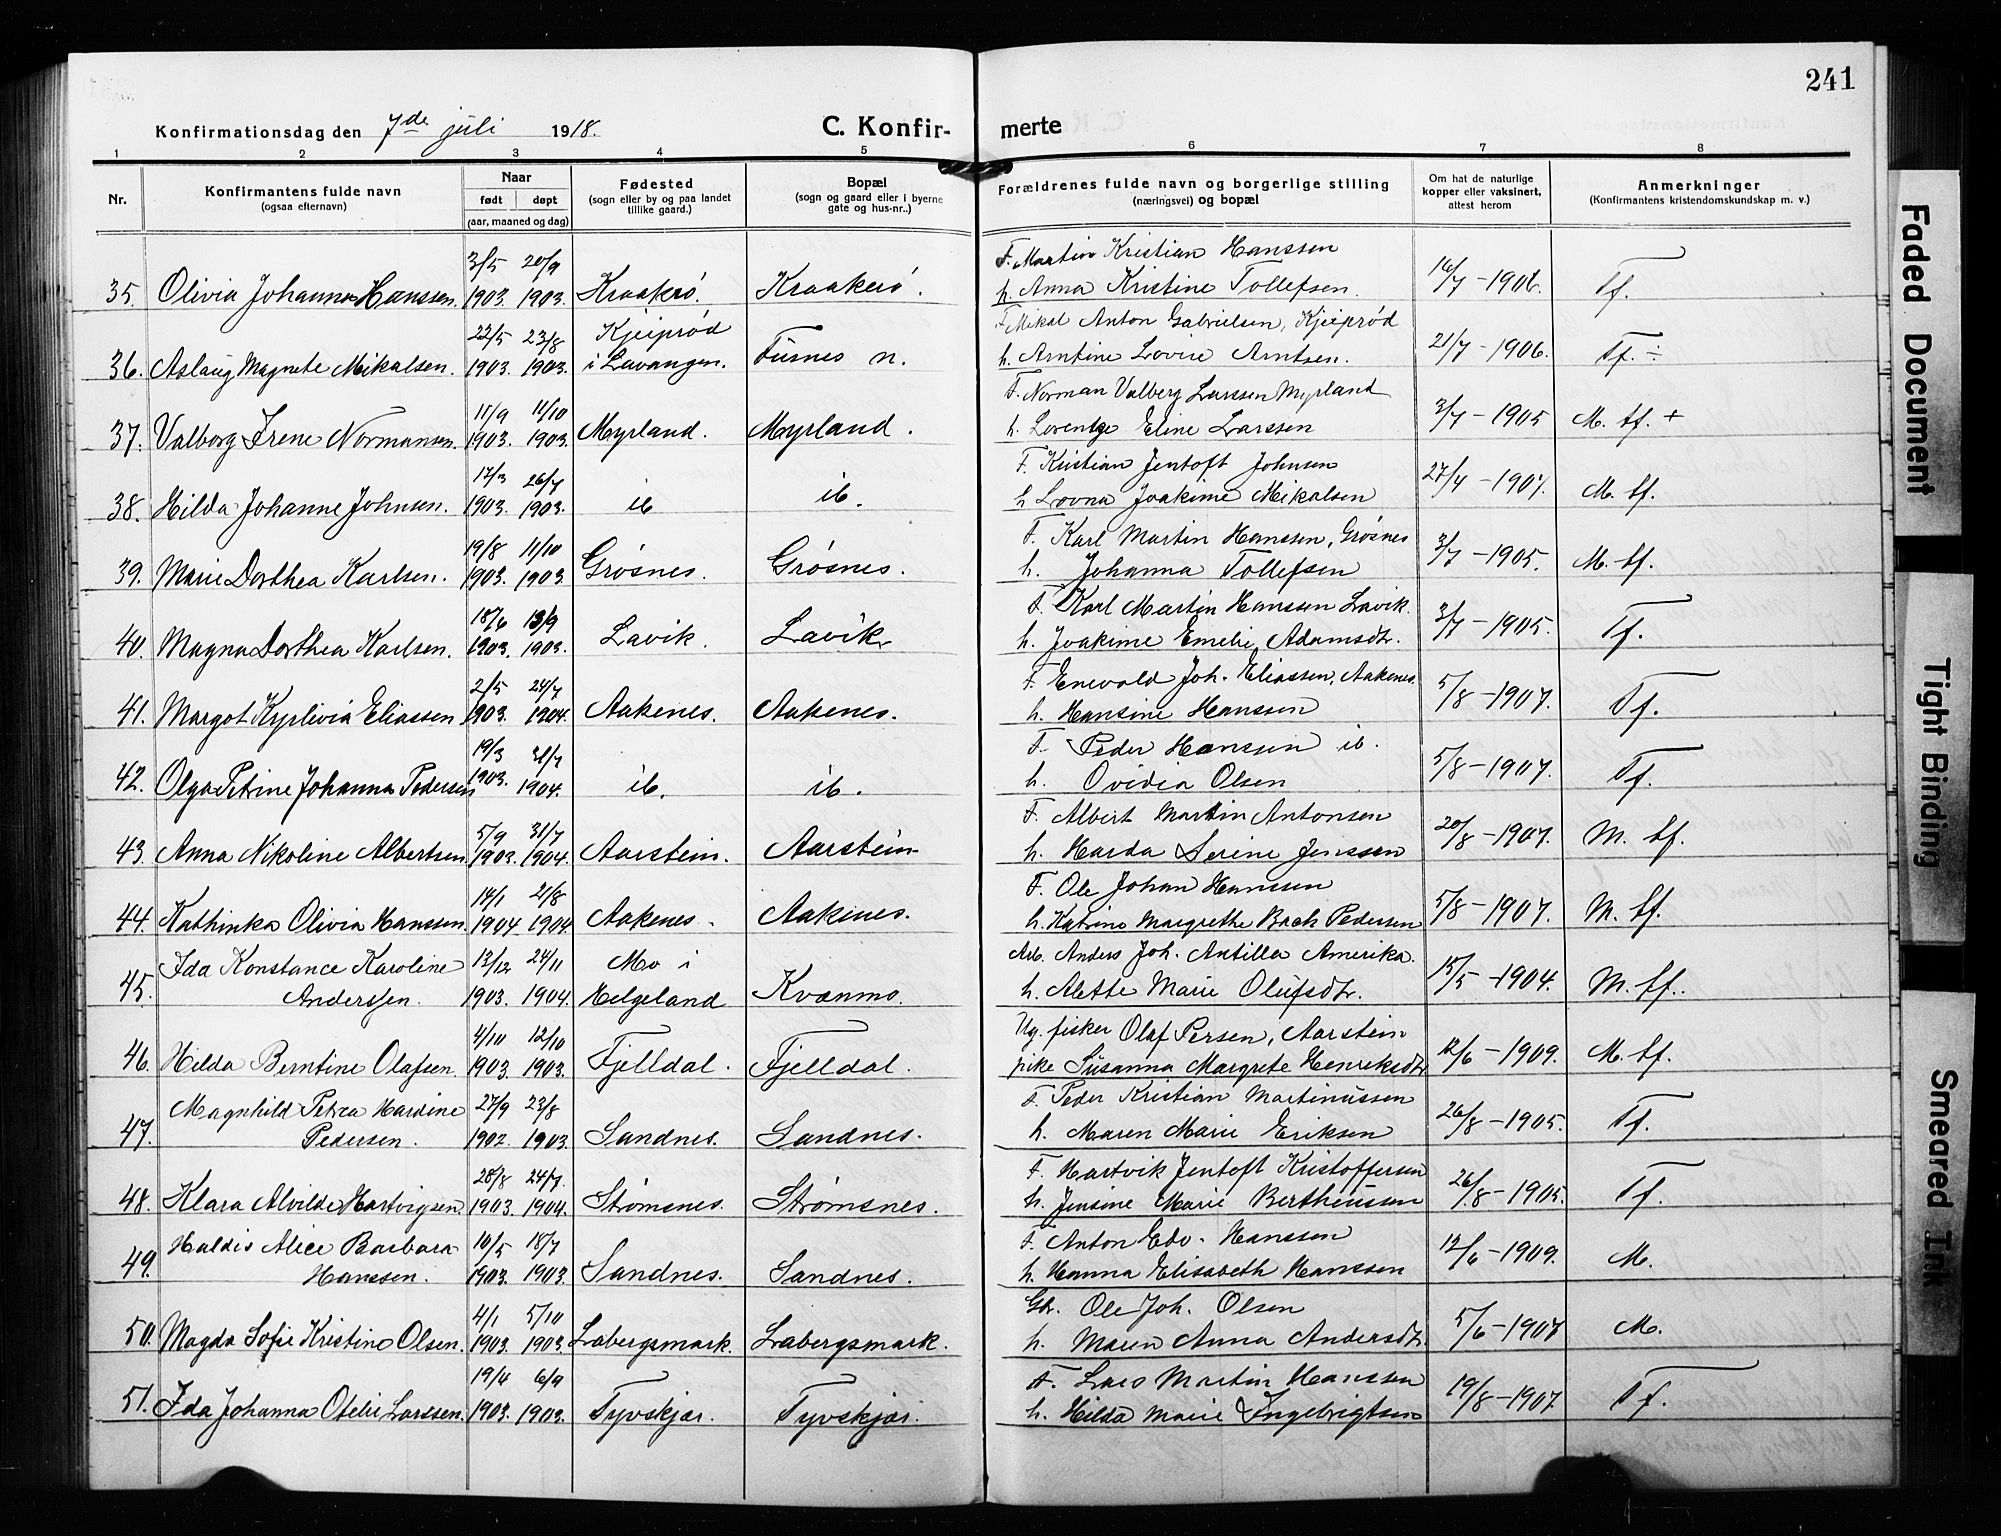 241
Konfirmationsdag den 7de juli 1918.
C. Konfir-
merte
1 2 3 4 5 6 7 8
Nr.
Konfirmantens fulde navn
(ogsaa efternavn)
Naar
født døpt
(aar, maaned og dag)
Fødested
(sogn eller by og paa landet
tillike gaard.)
Bopæl
(sogn og gaard eller i byerne
gate og hus-nr..)
Forældrenes fulde navn og borgerlige stilling
(næringsvei) og bopæl
Om hat de naturlige
kopper eller vaksinert,
attest herom
Anmerkninger
(Konfirmantens kristendomskundskap m. v.)
3/5 20/9 F. Martin Kristian Hanssen
35. Olivia Johanna Hanssen. 1903. 1903. Kraakrø. Kraakerø. h. Anna Kristine Tollefsen. 16/7 - 1906. Tf.
22/5 23/8 Kjeiprød F Mikal Anton Gabrielsen, Kjeiprød
36. Aslaug Magnete Mikalsen. 1903. 1903. i Lavangen. Fusnes n. h. Arntine Lovise Arntsen. 21/7 - 1906. Tf. ÷
11/9 11/10 F. Norman Valberg Larssen Myrland
37. Valborg Irene Normansen. 1903. 1903. Myrland. Myrland. h. Lorentze Eline Larssen 3/7 - 1905 M. tf. +
17/3 26/7 F. Kristian Jentoft Johnsen
38. Hilda Johanne Johnsen. 1903. 1903. ib ib. h Lovna Joakime Mikalsen 27/4 - 1907. M. tf.
19/8 11/10 F. Karl Martin Hanssen, Grøsnes
39. Marie Dorthea Karlsen. 1903. 1903 Grøsnes. Grøsnes. h. Johanna Tollefsen 3/7 - 1905. M. tf.
18/6 13/9 F. Karl Martin Hanssen Lavik.
40. Magna Dorthea Karlsen. 1903. 1903. Lavik. Lavik h. Joakime Emelie Adamsdtr. 3/7 - 1905. Tf.
2/5 24/7 F. Enevold Joh. Eliassen, Aakenes.
41. Margot Kyrlivia Eliassen 1903. 1904. Aakenes. Aakenes. h. Hansine Hanssen 5/8 - 1907. Tf.
19/3 31/7 F. Peder Hanssen ib.
42. Olga Petrine Johanna Pedersen 1903. 1904. ib. ib. h. Ovidia Olsen 5/8 - 1907. Tf.
5/9 31/7 F. Albert Martin Antonsen
43. Anna Nikoline Albertsen 1903. 1904. Aarstein. Aarstein h. Harda Serine Jenssen 20/8 - 1907. M. tf.
14/1 21/8 F. Ole Johan Hanssen
44. Kathinka Olivia Hanssen. 1904 1904 Aakenes. Aakenes. h. Katrine Margrethe Bach Pedersen 5/8 - 1907. M. tf.
Ida Konstance Karoline 13/12 24/11 Mo i Arb. Anders Joh. Antilla Amerika.
45. Anderssen. 1903. 1904. Helgeland Kvanmo. h. Alette Marie Olufsdtr. 15/5 - 1904. M. tf.
4/10 12/10 Ug. fisker Olaf Persen, Aarstein
46. Hilda Berntine Olafsen. 1903. 1903. Fjelldal. Fjelldal. pike Susanna Margrete Henriksdtr 12/6 - 1909. M. tf.
Magnhild Petra Hardine 27/9 23/8 F. Peder Kristian Martinussen
47. Pedersen. 1902. 1903. Sandnes. Sandnes. h. Maren Marie Eriksen 26/8 - 1905. Tf.
28/8 24/7. F. Hartvik Jentoft Kristoffersen
48. Klara Alvilde Hartvigsen. 1903. 1904. Strømsnes. Strømsnes. h. Jensine Marie Bertheussen 26/8 - 1905. Tf.
Haldis Alice Barbara 10/5 18/7 F. Anton Edv. Hanssen
49. Hanssen. 1903. 1903. Sandnes. Sandnes. h. Hanna Elisabeth Hanssen 12/6 - 1909. M.
4/1 5/10 Gbr. Ole Joh. Olsen
50. Magda Sofie Kristine Olsen. 1903. 1903. Labergsmark. Labergsmark. h. Maren Anna Andersdtr. 5/6 - 1907 M.
19/4 6/9 F. Lars Martin Hanssen
51. Ida Johanna Otelie Larssen. 1903. 1903. Tyvskjær. Tyvskjær. h. Hilda Marie Ingebrigtsen 19/8 - 1907. Tf.
Faded Document
Tight Binding
Smeared Ink